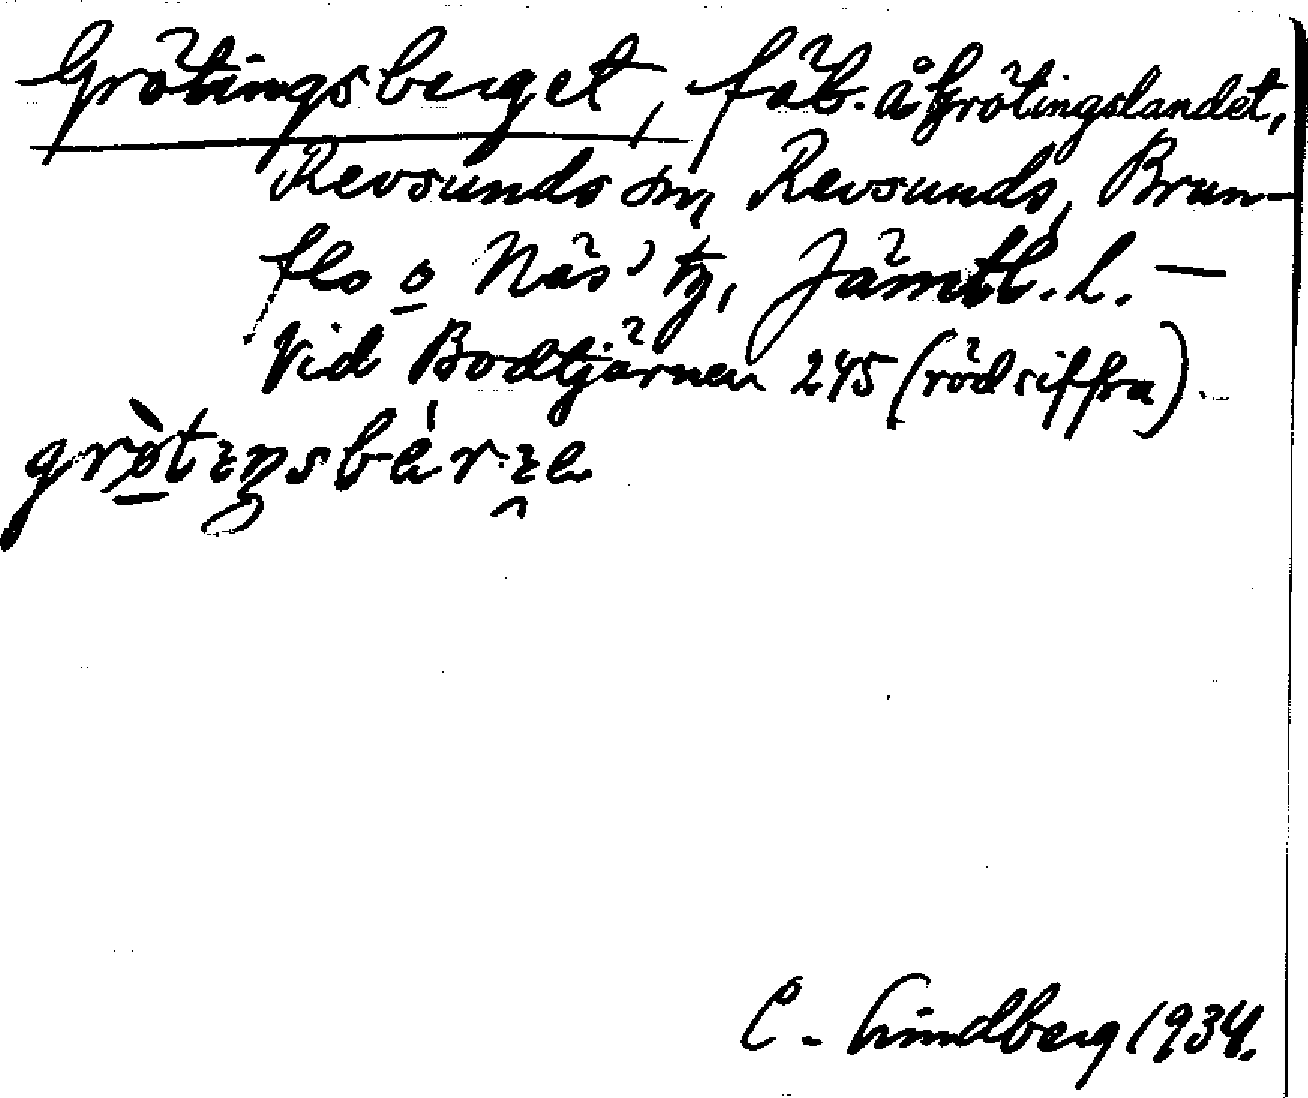 Grötingsberget, fäb. å Grötingslandet,
Revsunds sn, Revsunds, Brun-
flo o Näs' tg, Jämtl. l. —
Vid Bodtjärnen 245 (röd siffra).
C. Lindberg 1934.